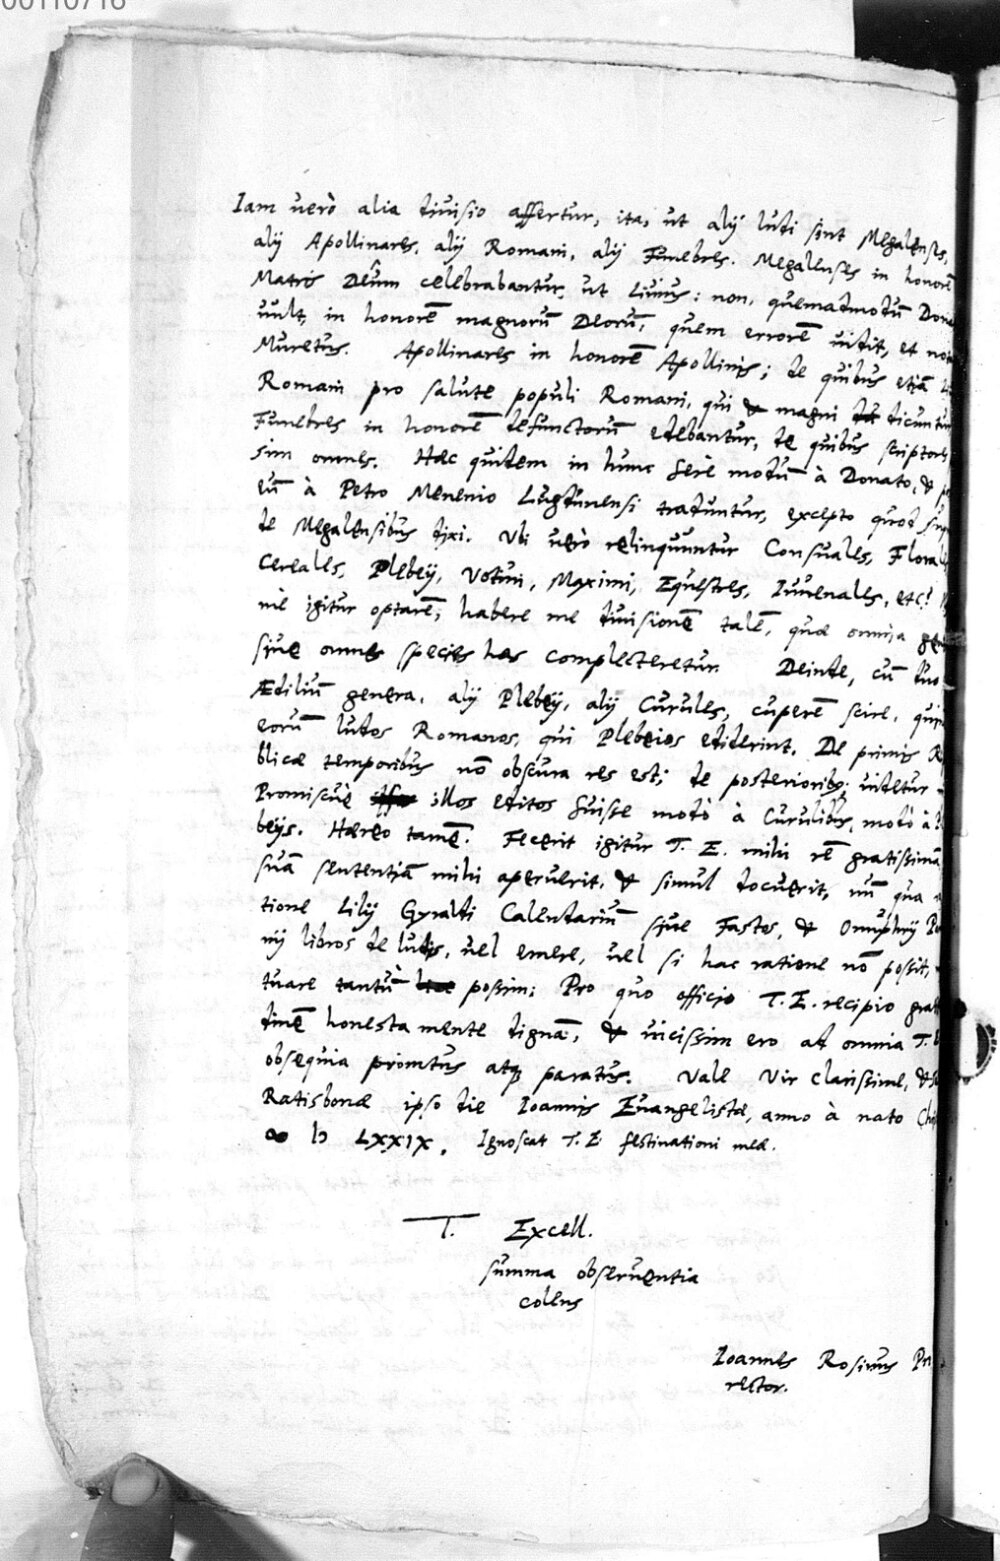 00110716
Iam uerò alia diuisio affertur, ita, ut alij ludi sint Megalenses,
alij Apollinares, alij Romani, alij Funebres. Megalenses in honorẽ
Matris Deûm celebrabantur, ut Liuius: non, quemadmodũ Dona
uult, in honorẽ magnorũ Deorũ, quem errorẽ uidit, et not
Muretus. Apollinares in honorẽ Apollinis; de quibus etiã
Romani pro salute populi Romani, qui & magni dicuntur
Funebres in honorẽ defunctorũ edebantur, de quibus scriptores
sim omnes. Hæc quidem in hunc ferè modũ à Donato, &
eũ à Petro Menenio Lugdunensi traduntur, excepto quod sup
de Megalensibus dixi. Ubi uerò relinquuntur Consuales, Florales
Cereales, Plebeij, Votiui, Maximi, Equestres, Iuuenales, etc?
mè igitur optarẽ, habere me diuisionẽ talẽ, quæ omnia gen
siue omnes species has complecteretur. Deinde, cũ duo
Ædiliũ genera, alij Plebeij, alij Curules, cuperẽ scire, qui
eorũ ludos Romanos, qui Plebeios ediderint. De primis R
blicæ temporibus nõ obscura res est; de posteriorib9; uidetur
Promiscuè illos editos fuisse modò à Curulibus, modò à
beijs. Hæreo tamẽ. Fecerit igitur T. E. mihi rẽ gratissimã
suã sententiã mihi aperuerit, & simul docuerit, nũ qua
tione Lilij Gyraldi Calendariũ siue Fastos, & Onuphrij
nij libros de ludis, uel emere, uel si hac ratione nõ possit,
tuare tantũ possim; Pro quo officio T. E. recipio grat
dinẽ honesta mente dignã, & uicissim ero ad omnia T.
obsequia promtus atq3 paratus. Vale Vir clarissime, &
Ratisbonæ ipso die Ioannis Euangelistæ, anno à nato Chi
∞ D LXXIX. Ignoscat T. E festinationi meæ.
T. Excell.
summa obseruentia
colens
Ioannes Rosinus
rector.